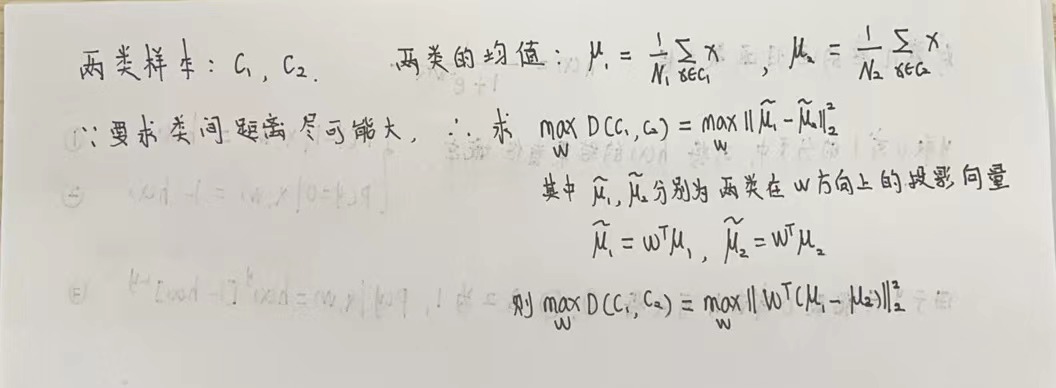 两类样本: C₁, C₂. 两类的均值: μ₁ = 1/N₁ ∑_{x∈C₁} x , μ₂ = 1/N₂ ∑_{x∈C₂} x
∵ 要求类间距离尽可能大, ∴ 求 max_W D(C₁, C₂) = max_W ‖μ̃₁ - μ̃₂‖₂²
其中 μ̃₁, μ̃₂ 分别为两类在 W 方向上的投影向量
μ̃₁ = Wᵀμ₁ , μ̃₂ = Wᵀμ₂
则 max_W D(C₁, C₂) = max_W ‖Wᵀ(μ₁ - μ₂)‖₂²